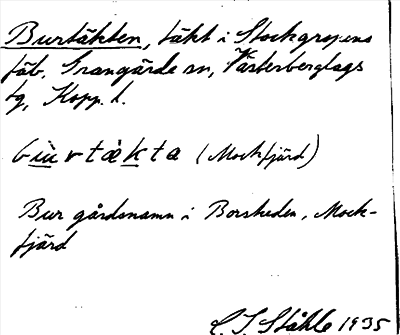 Burtäkten, täkt i Stockgropens
fäb. Grangärde sn, Västerbergslags
tg, Kopp. l.
bu̱ù̱rtàḵta (Mockfjärd)
Bur gårdsnamn i Borsheden, Mock-
fjärd
C. I. Ståhle 1935